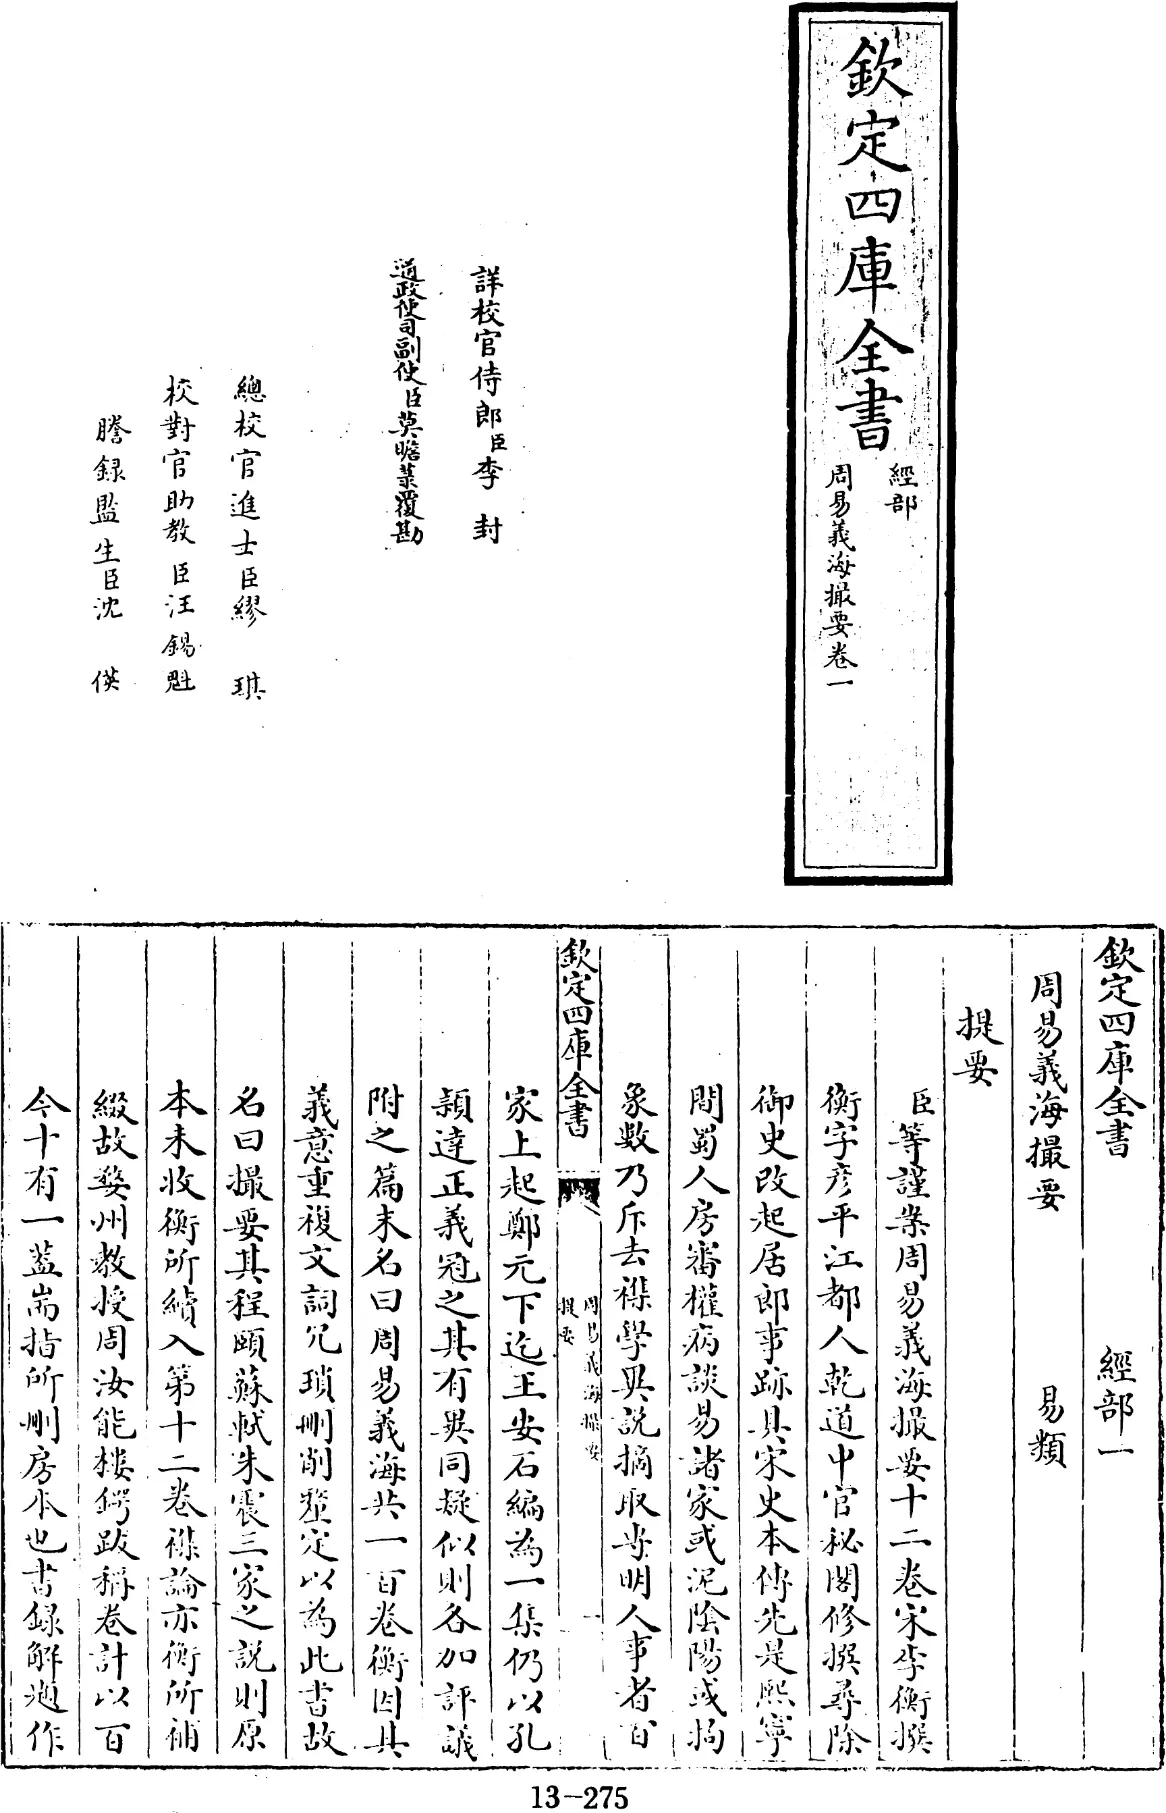 欽定四庫全書
經部
周易義海撮要卷一
詳校官侍郎臣李封
通政使司副使臣莫瞻菉覆勘
總校官進士臣繆琪
校對官助教臣汪錫魁
謄錄監生臣沈偀
欽定四庫全書 經部一
周易義海撮要 易類
提要
臣等謹案周易義海撮要十二卷宋李衡撰
衡字彦平江都人乾道中官秘閣修撰尋除
御史改起居郎事跡具宋史本傳先是熙寧
間蜀人房審權病談易諸家或泥陰陽或拘
象數乃斥去襍學異說摘取専明人事者百
欽定四庫全書
周易義海撮要
提要
一
家上起鄭元下迄王安石編為一集仍以孔
穎達正義冠之其有異同疑似則各加評議
附之篇末名曰周易義海共一百卷衡因其
義意重複文詞冗瑣刪削釐定以為此書故
名曰撮要其程頤蘇軾朱震三家之說則原
本未收衡所續入第十二卷襍論亦衡所補
綴故婺州教授周汝能樓鍔跋稱卷計以百
今十有一葢耑指所刪房本也書錄解題作
13-275